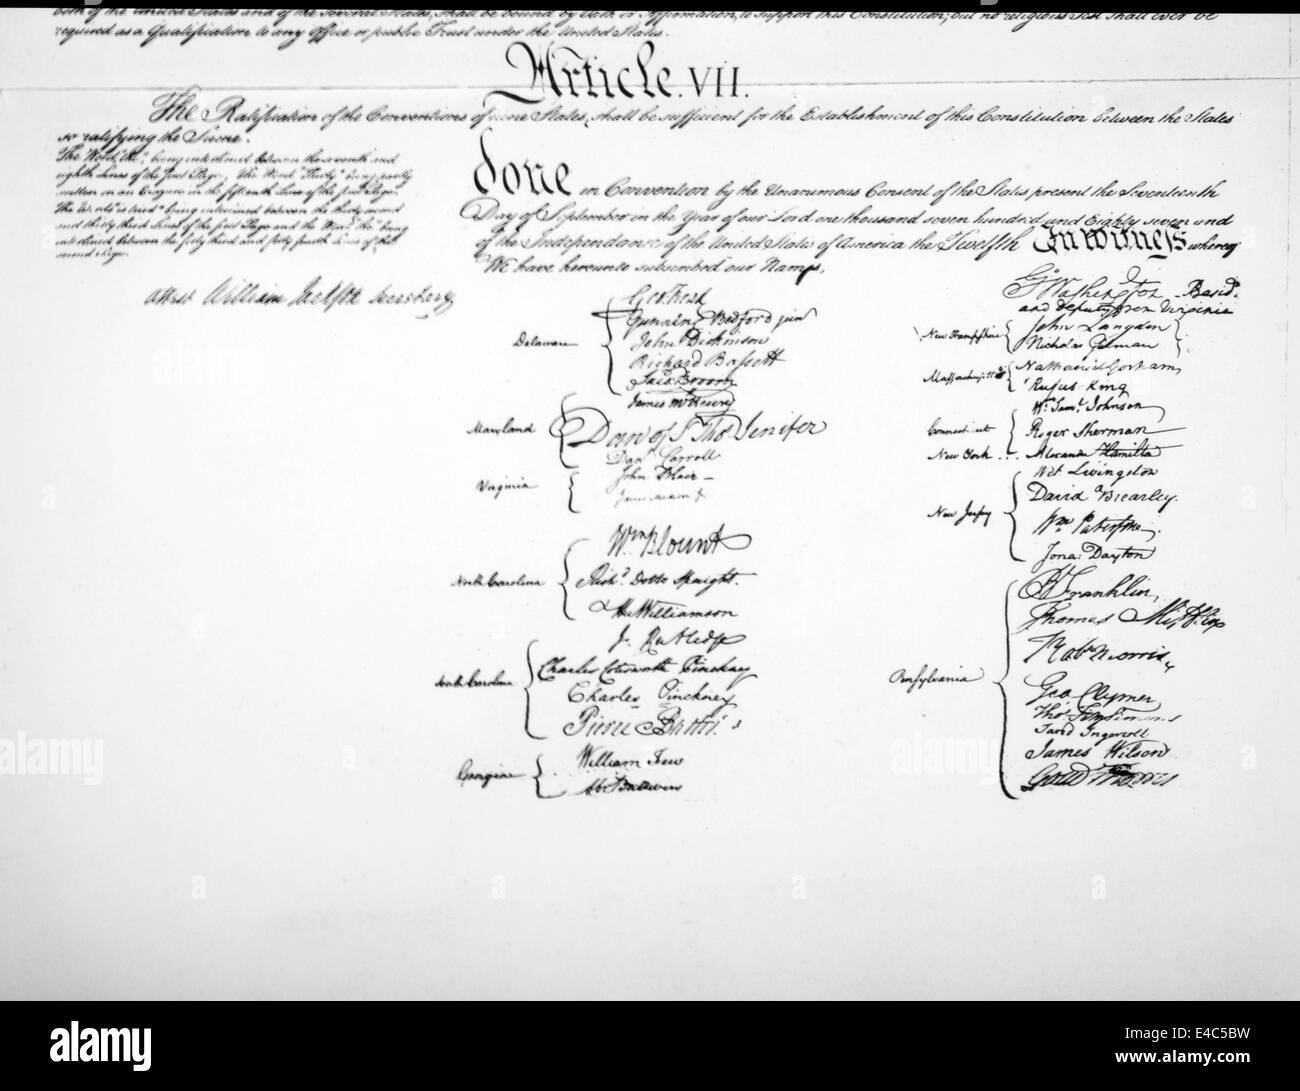 both of the United States and of the several States, shall be bound by Oath or Affirmation, to support this Constitution; but no religious Test shall ever be
required as a Qualification to any Office or public Trust under the United States.
Article. VII.
The Ratification of the Conventions of nine States, shall be sufficient for the Establishment of this Constitution between the States
so ratifying the Same.
The Word, "the," being interlined between the seventh and
eighth Lines of the first Page, The Word "Thirty" being partly
written on an Erazure in the fifteenth Line of the first Page,
The Words "is tried" being interlined between the thirty second
and thirty third Lines of the first Page and the Word "the" being
interlined between the forty third and forty fourth Lines of the
second Page.
Attest William Jackson Secretary
done in Convention by the Unanimous Consent of the States present the Seventeenth
Day of September in the Year of our Lord one thousand seven hundred and Eighty seven and
of the Independance of the United States of America the Twelfth In Witness whereof
We have hereunto subscribed our Names,
Delaware
Geo: Read
Gunning Bedford jun
John Dickinson
Richard Bassett
Jaco: Broom
Maryland
James McHenry
Dan of St Thos Jenifer
Danl Carroll
Virginia
John Blair –
James Madison Jr
North Carolina
Wm Blount
Richd Dobbs Spaight.
Hu Williamson
South Carolina
J. Rutledge
Charles Cotesworth Pinckney
Charles Pinckney
Pierce Butler.
Georgia
William Few
Abr Baldwin
Go Washington Presidt.
and deputy from Virginia
New Hampshire
John Langdon
Nicholas Gilman
Massachusetts
Nathaniel Gorham
Rufus King
Connecticut
Wm. Saml. Johnson
Roger Sherman
New York . . .
Alexander Hamilton
New Jersey
Wil: Livingston
David Brearley.
Wm Paterson.
Jona: Dayton
Pensylvania
B Franklin
Thomas Mifflin
Robt Morris
Geo. Clymer
Thos. FitzSimons
Jared Ingersoll
James Wilson
Gouv Morris
alamy
alamy
alamy
alamy
Image ID: E4C5BW
www.alamy.com
E4C5BW